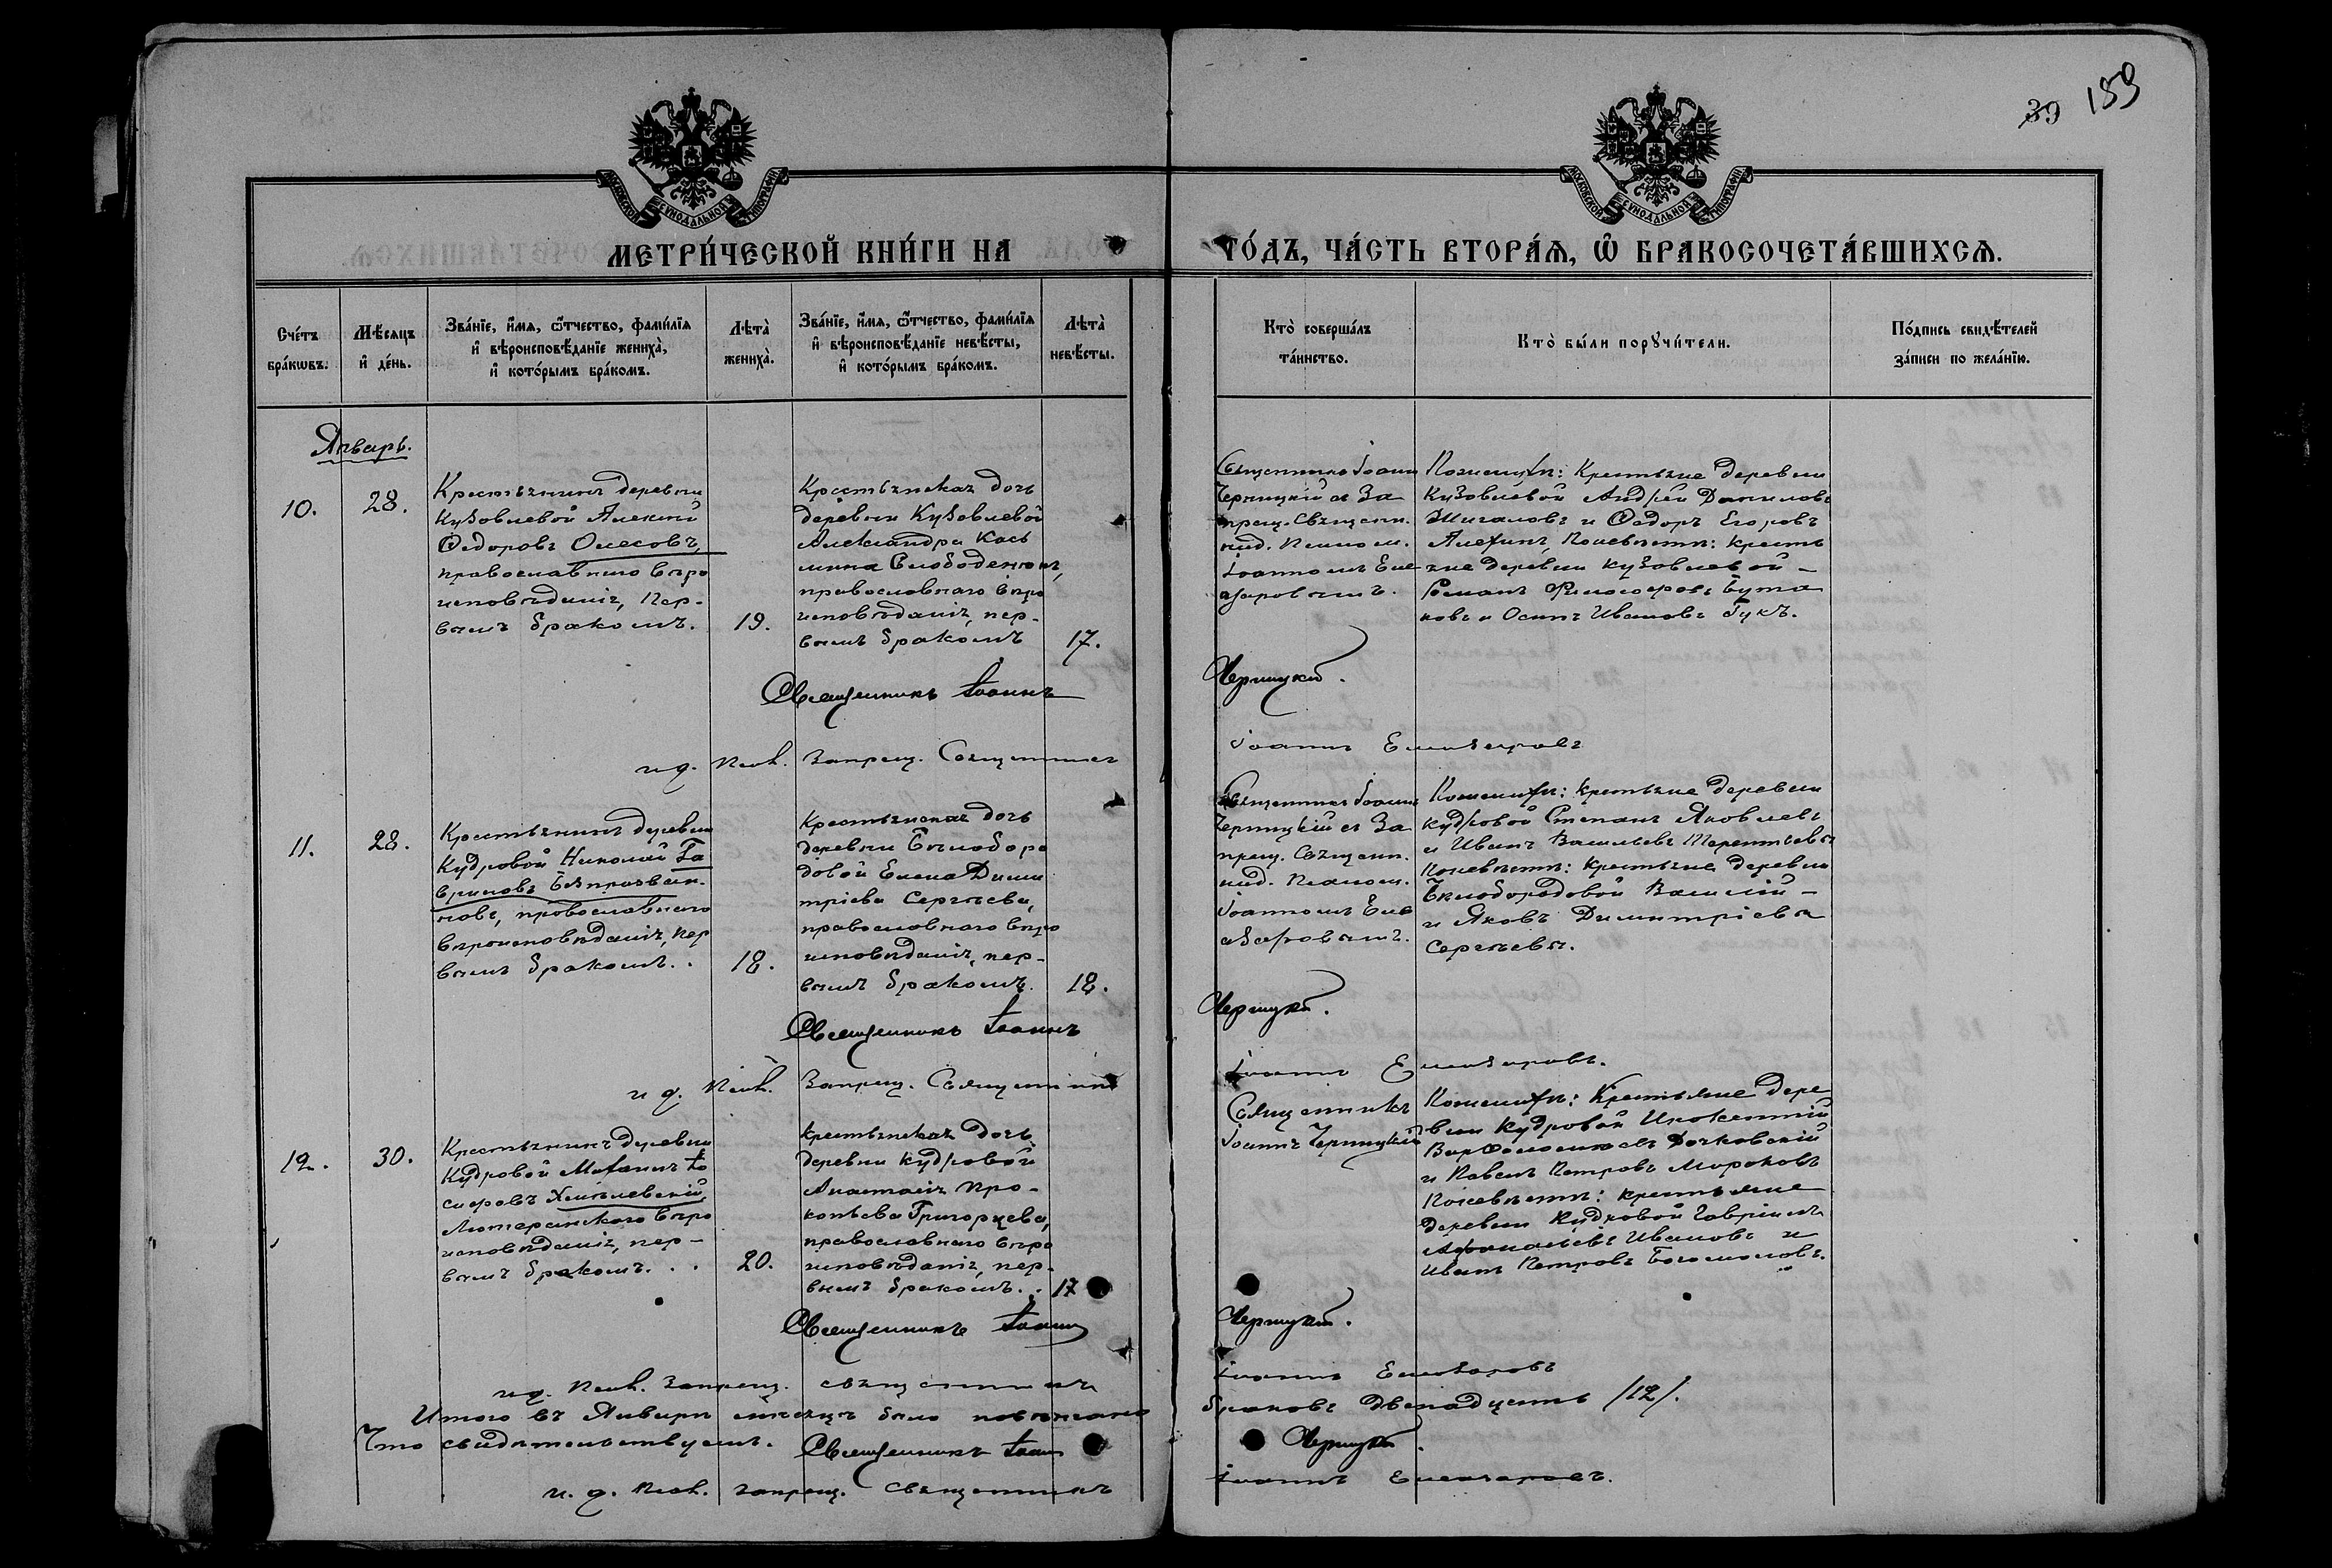 39 159
МОСКОВСКОЙ СУНОДАЛЬНОЙ ТИПОГРАФІИ
МОСКОВСКОЙ СУНОДАЛЬНОЙ ТИПОГРАФІИ
МЕТРИ́ЧЕСКОЙ КНИ́ГИ НА
ГО́ДЪ, ЧА́СТЬ ВТОРА́Ѧ, Ѽ БРАКОСОЧЕТА́ВШИХСѦ.
Сче́тъ
бра́кѡвъ.
Мѣ́сѧцъ
и҆ де́нь.
Зва́нїе, и҆́мѧ, ѻ҆́тчество, фами́лїѧ
и҆ вѣроисповѣ́данїе жениха̀,
и҆ кото́рымъ бра́комъ.
Лѣта̀
жениха̀.
Зва́нїе, и҆́мѧ, ѻ҆́тчество, фами́лїѧ
и҆ вѣроисповѣ́данїе невѣ́сты,
и҆ кото́рымъ бра́комъ.
Лѣта̀
невѣ́сты.
Кто̀ соверша́лъ
та́инство.
Кто̀ бы́ли порꙋчи́тели.
По́дпись свидѣ́телей
за́писи по жела́нїю.
Январь.
10.
28.
Крестьянинъ деревни
Кузовлевой Алексій
Ѳедоровъ Олесовъ,
православнаго вѣро
исповѣданія, пер-
вымъ бракомъ.
19.
Крестьянская дочь
деревни Кузовлевой
Александра Кось
мина Слободенюкъ,
православнаго вѣро
исповѣданія, пер-
вымъ бракомъ
17.
Священникъ Іоаннъ
Черницкій съ За
прещ. Священ.
и.д. Псалом.
Іоанномъ Еле
азаровымъ.
По женихѣ: Крестьяне деревни
Кузовлевой Андрей Даниловъ
Жигаловъ и Ѳедоръ Егоровъ
Алехинъ, По невѣстѣ: Кресть
яне деревни Кузовлевой -
Романъ Бута
ковъ и Осипъ Ивановъ Гукъ.
Священникъ Іоаннъ Черницкій.
и д. Псал. Запрещ. Священникъ Іоаннъ Елеазаровъ
11.
28.
Крестьянинъ деревни
Кудровой Николай Га
вриловъ Безпрозван-
новъ, православнаго
вѣроисповѣданія, пер
вымъ бракомъ..
18.
Крестьянская дочь
деревни Бѣлобора
довой Елена Дими
тріева Сергѣева,
православнаго вѣро
исповѣданія, пер-
вымъ бракомъ.
18.
Священникъ Іоаннъ
Черницкій съ За
прещ. Священ.
и.д. Псалом.
Іоанномъ Еле
азаровымъ.
По женихѣ: Крестьяне деревни
Кудровой Степанъ Яковлевъ
и Иванъ Васильевъ Терентьевы
По невѣстѣ: Крестьяне деревни
Бѣлобородовой Василій -
и Яковъ Димитріевы
Сергѣевы.
Священникъ Іоаннъ Черницкій.
и д. Псал. Запрещ. Священникъ Іоаннъ Елеазаровъ.
12.
30.
Крестьянинъ деревни
Кудровой
Хмѣлевскій,
Лютеранскаго вѣро
исповѣданія, пер-
вымъ бракомъ...
20.
Крестьянская дочь
деревни Кудровой
Анастасія Про-
копьева Григорцева,
православнаго вѣро
исповѣданія, пер-
вымъ бракомъ..
17
Священникъ
Іоаннъ Черницкій
По женихѣ: Крестьяне дере
вни Кудровой Инокентій
Варѳоломеевъ Дочковскій
и Павелъ Петровъ Мороковъ
По невѣстѣ: крестьяне
деревни Кудровой Гавріилъ
Афанасьевъ Ивановъ и
Иванъ Петровъ Богомоловъ.
Священникъ Іоаннъ Черницкій.
и д. Псал. Запрещ. священникъ Іоаннъ Елеазаровъ
Итого въ Январѣ мѣсяцѣ было повѣнчано браковъ двѣнадцать /12/.
Что свидѣтельствуемъ. Священникъ Іоаннъ Черницкій.
и. д. Псал. запрещ. священникъ Іоаннъ Елеазаровъ.